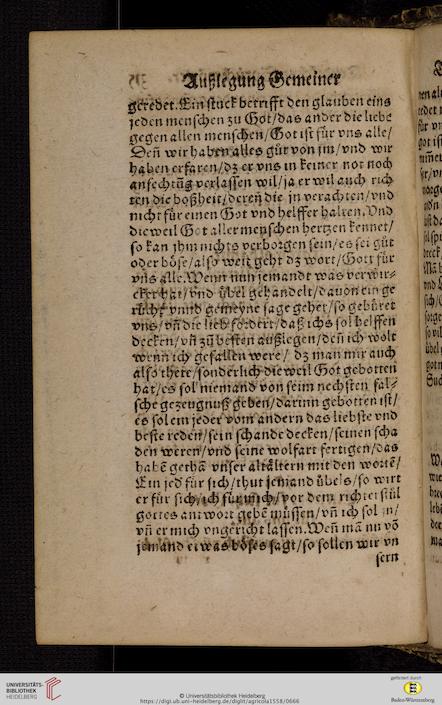 Außlegung Gemeiner
geredet. Ein stuck betrifft den glauben eins
jeden menschen zu Got/das ander die liebe
gegen allen menschen/Got ist für vns alle/
Deñ wir haben alles gůt von jm/vnd wir
haben erfaren/dz er vns in keiner not noch
anfechtũg verlassen wil/ja er wil auch rich
ten die boßheit/deren die jn verachten/vnd
nicht für einen Got vnd helffer halten. Vnd
dieweil Got aller menschen hertzen kennet/
so kan jhm nichts verborgen sein/es sei gůt
oder böse/also weit geht dz wort/Gott für
vns alle. Wenn nun jemandt was verwir-
cket hat/vnd übel gehandelt/dauon ein ge
rücht vnnd gemeyne sage gehet/so gebüret
vns/vñ die lieb fordert/daß ichs sol helffen
decken/vñ zů besten außlegen/den ich wolt
wenn ich gefallen were/dz man mir auch
also thete/sonderlich die weil Got gebotten
hat/es sol niemand von seim nechsten fal-
sche gezeugnuß geben/darinn gebotten ist/
es sol ein jeder vom andern das liebste vnd
beste reden/sein schande decken/seinen scha
den weren/vnd seine wolfart fertigen/das
habẽ gethã vnser altältern mit den wortẽ/
Ein jed für sich/thut jemand übels/so wirt
er für sich/ich für mich/vor dem richterstůl
gottes antwort gebẽ müssen/vñ ich sol jn/
vñ er mich vngericht lassen. Weñ mã nu võ
jemand etwas böses sagt/so sollen wir vn
sern
UNIVERSITÄTS-
BIBLIOTHEK
HEIDELBERG
© Universitätsbibliothek Heidelberg
https://digi.ub.uni-heidelberg.de/diglit/agricola1558/0666
gefördert durch
Baden-Württemberg